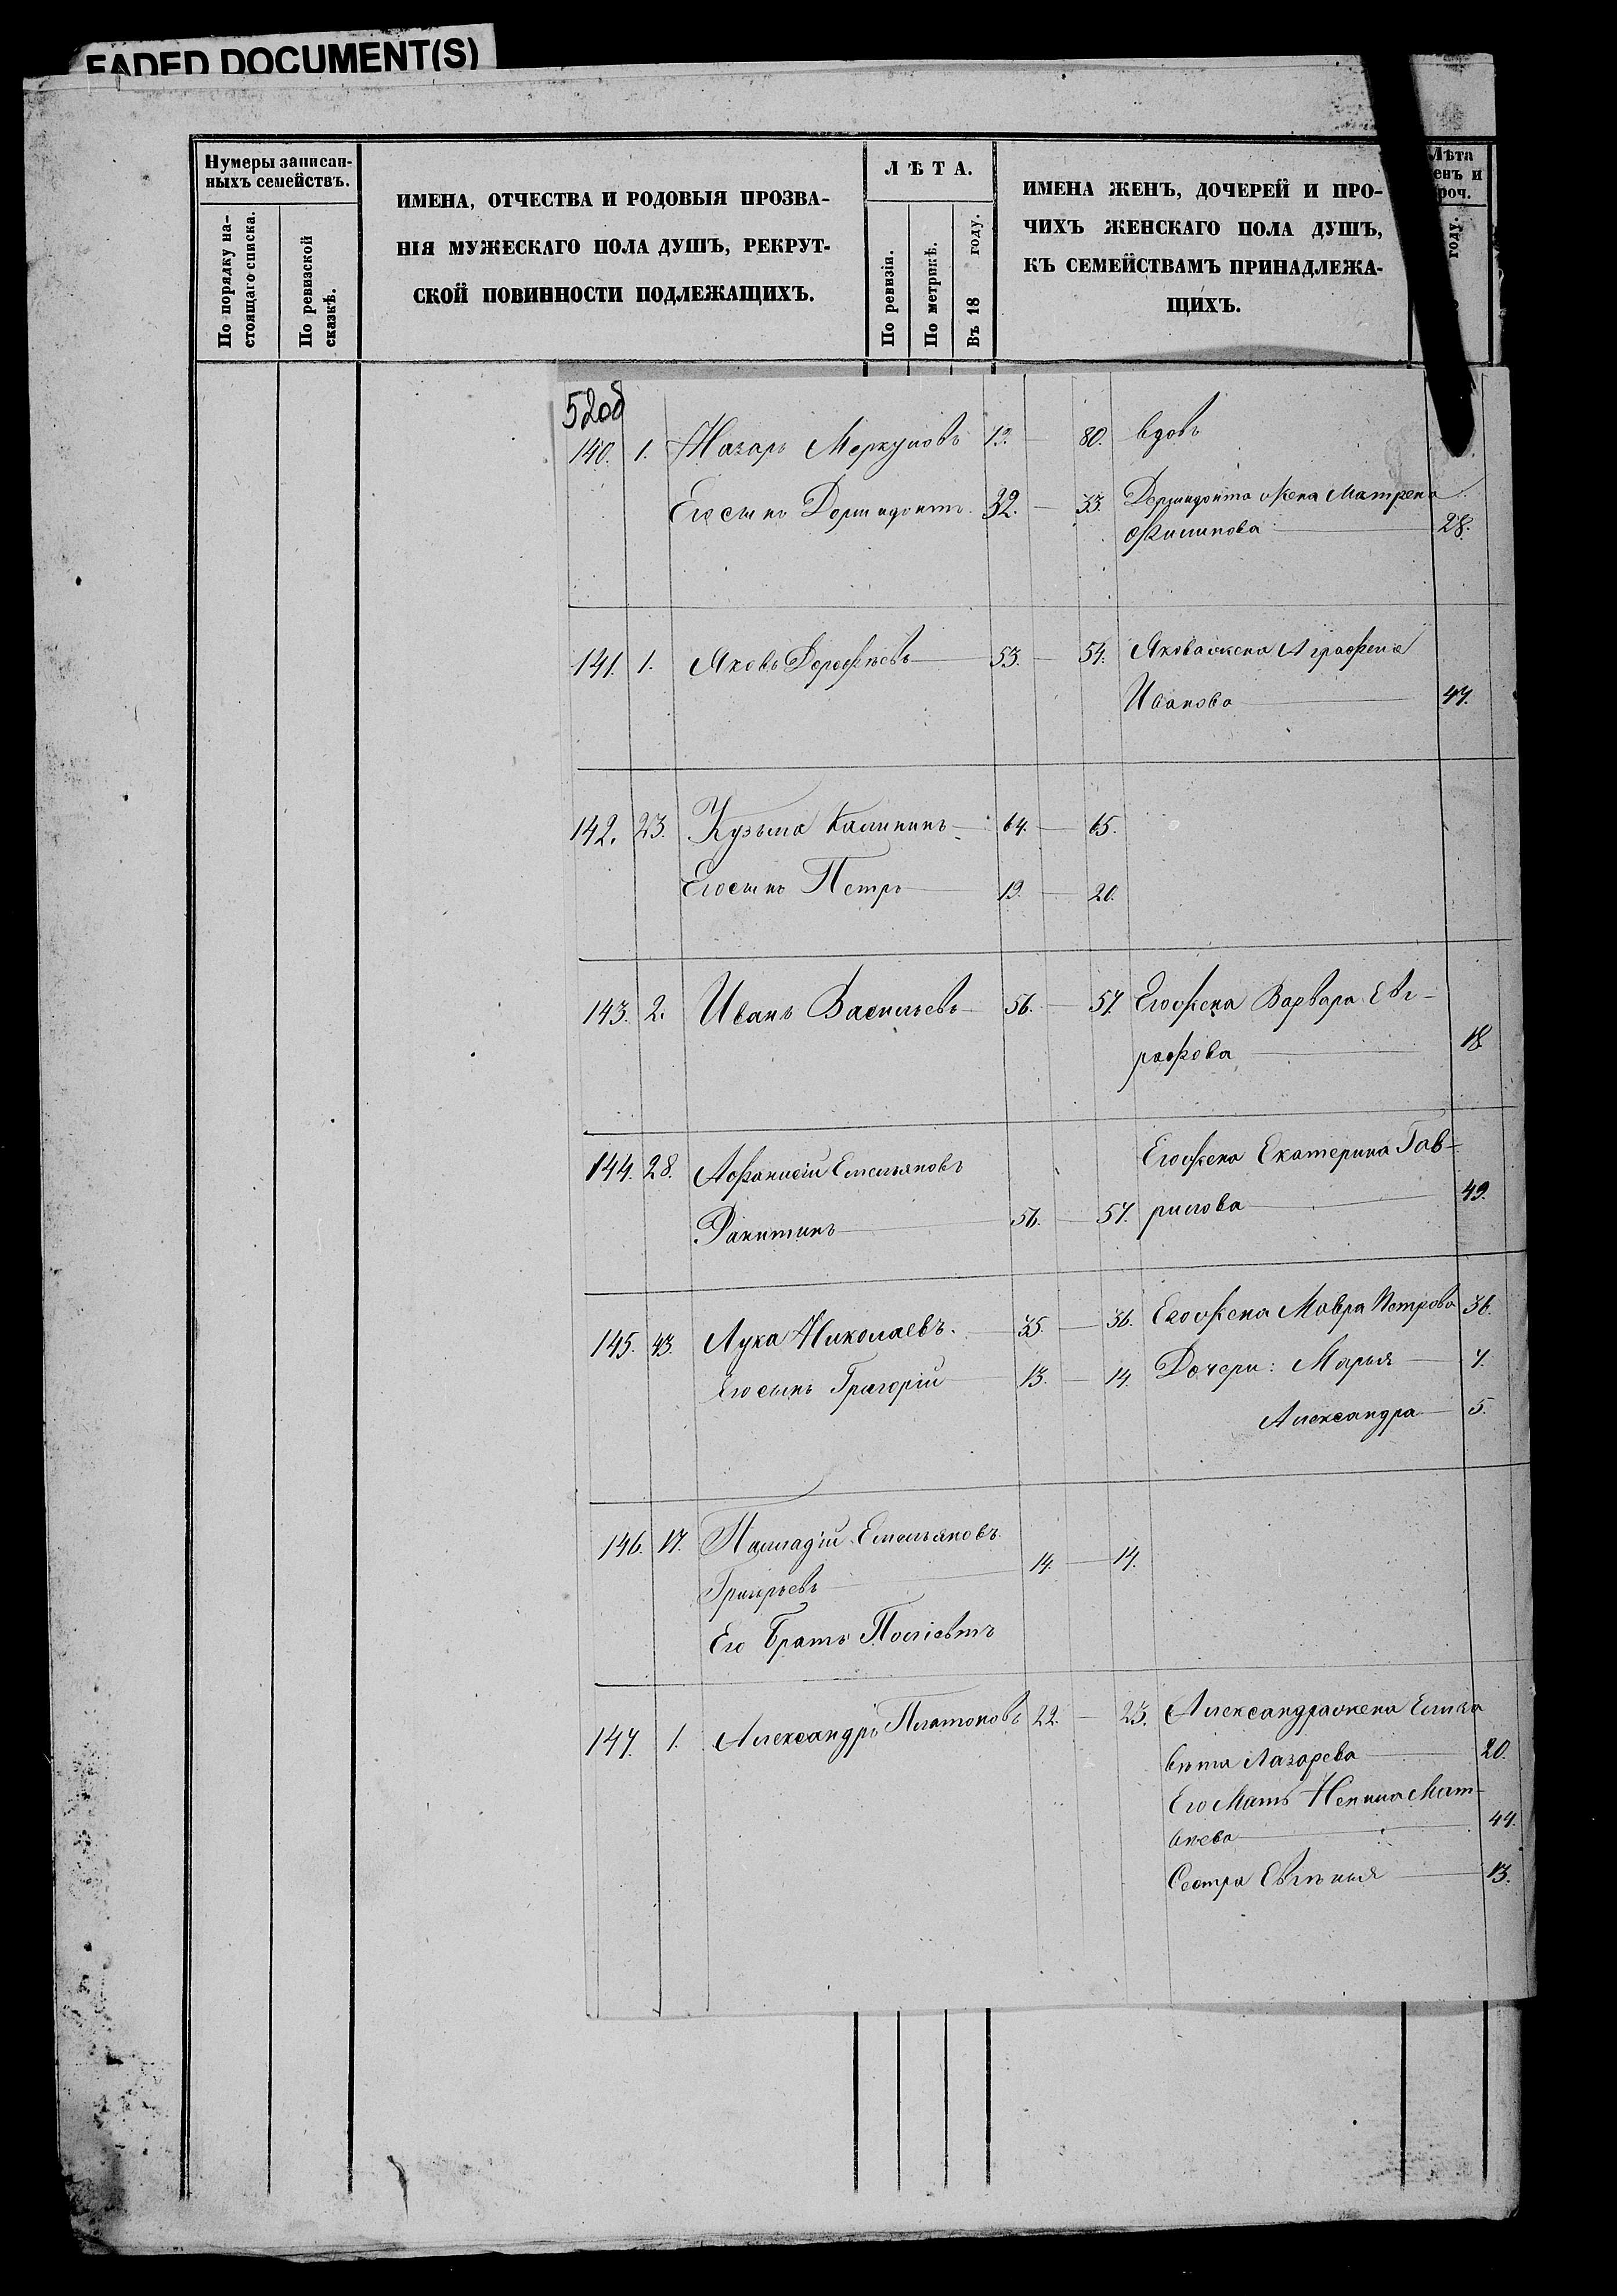 FADED DOCUMENT(S)
Нумеры записан-
ныхъ семействъ.
По порядку на-
стоящаго списка.
По ревизской
сказкѣ.
ИМЕНА, ОТЧЕСТВА И РОДОВЫЯ ПРОЗВА-
НІЯ МУЖЕСКАГО ПОЛА ДУШЪ, РЕКРУТ-
СКОЙ ПОВИННОСТИ ПОДЛЕЖАЩИХЪ.
ЛѢТА.
По ревизіи.
По метрикѣ.
Въ 18 году.
ИМЕНА ЖЕНЪ, ДОЧЕРЕЙ И ПРО-
ЧИХЪ ЖЕНСКАГО ПОЛА ДУШЪ,
КЪ СЕМЕЙСТВАМЪ ПРИНАДЛЕЖА-
ЩИХЪ.
Лѣта
енъ и
роч.
году.
52об
140. 1. Назаръ Меркуловъ 80. вдовъ
Его сынъ Дормидонтъ 32. — 33. Дормидонта жена Матрена
Филипова — 28.
141. 1. Яковъ Дорофѣевъ — 53. — 54. Якова жена Аграфена
Иванова — 47.
142. 23. Кузьма Калининъ — 64. — 65.
Его сынъ Петръ — 19. — 20.
143. 2. Иванъ Васильевъ — 56. — 57. Его жена Варвара Евг-
рафова — 18.
144. 28. Афанисій Емельяновъ Его жена Екатерина Гав-
Ракитинъ — 56. — 57. рилова — 49.
145. 43. Лука Николаевъ. — 35. — 36. Его жена Мавра Петрова 36.
Его сынъ Григорій — 13. — 14. Дочери: Марья — 7.
Александра — 5.
146. 17. Палладій Емельяновъ
Григорьевъ — 14. — 14.
Его Братъ Поліевтъ
147. 1. Александръ Платоновъ 22. — 23. Александра жена Елиза
вѣта Лазарева — 20.
Его Мать Ненила Мат-
вѣева — 44.
Сестра Евгѣнія — 13.